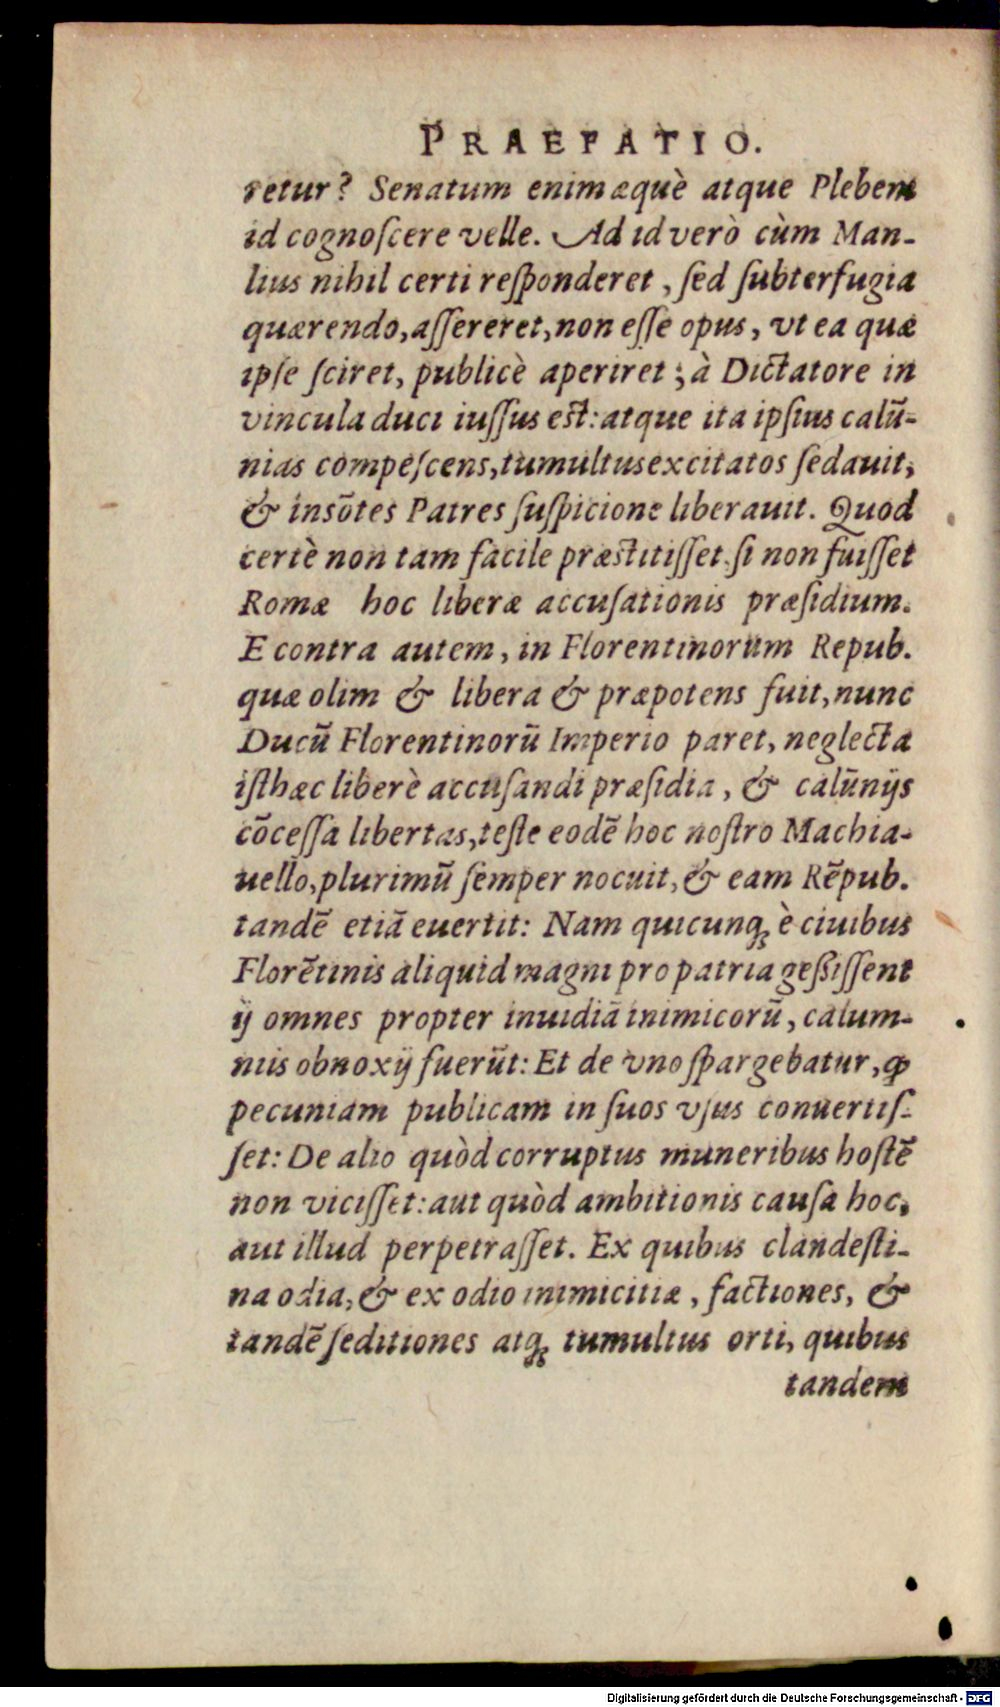 PRAEFATIO.
retur? Senatum enim æquè atque Plebem
id cognoſcere velle. Ad id verò cùm Man-
lius nihil certi reſponderet, ſed ſubterfugia
quærendo, aſſereret, non eſſe opus, vt ea quæ
ipſe ſciret, publicè aperiret; à Dictatore in
vincula duci iuſſus est: atque ita ipſius calũ-
nias compeſcens, tumultus excitatos ſedauit,
& insõtes Patres ſuſpicione liberauit. Quod
certè non tam facile præstitiſſet, ſi non fuiſſet
Romæ hoc liberæ accuſationis præſidium.
E contra autem, in Florentinorum Repub.
quæ olim & libera & præpotens fuit, nunc
Ducũ Florentinorũ Imperio paret, neglecta
iſthæc liberè accuſandi præſidia, & calũnijs
cõceſſa libertas, teſte eodẽ hoc noſtro Machia-
uello, plurimũ ſemper nocuit, & eam Rẽpub.
tandẽ etiã euertit: Nam quicunqꝫ è ciuibus
Florẽtinis aliquid magni pro patria geßiſſent
ij omnes propter inuidiã inimicorũ, calum-
niis obnoxij fuerũt: Et de vno ſpargebatur, ꝙ
pecuniam publicam in ſuos vſus conuertiſ-
ſet: De alio quòd corruptus muneribus hoſtẽ
non viciſſet: aut quòd ambitionis cauſa hoc,
aut illud perpetraſſet. Ex quibus clandeſti-
na odia, & ex odio inimicitiæ, factiones, &
tandẽ ſeditiones atqꝫ tumultus orti, quibus
tandem
Digitalisierung gefördert durch die Deutsche Forschungsgemeinschaft - DFG